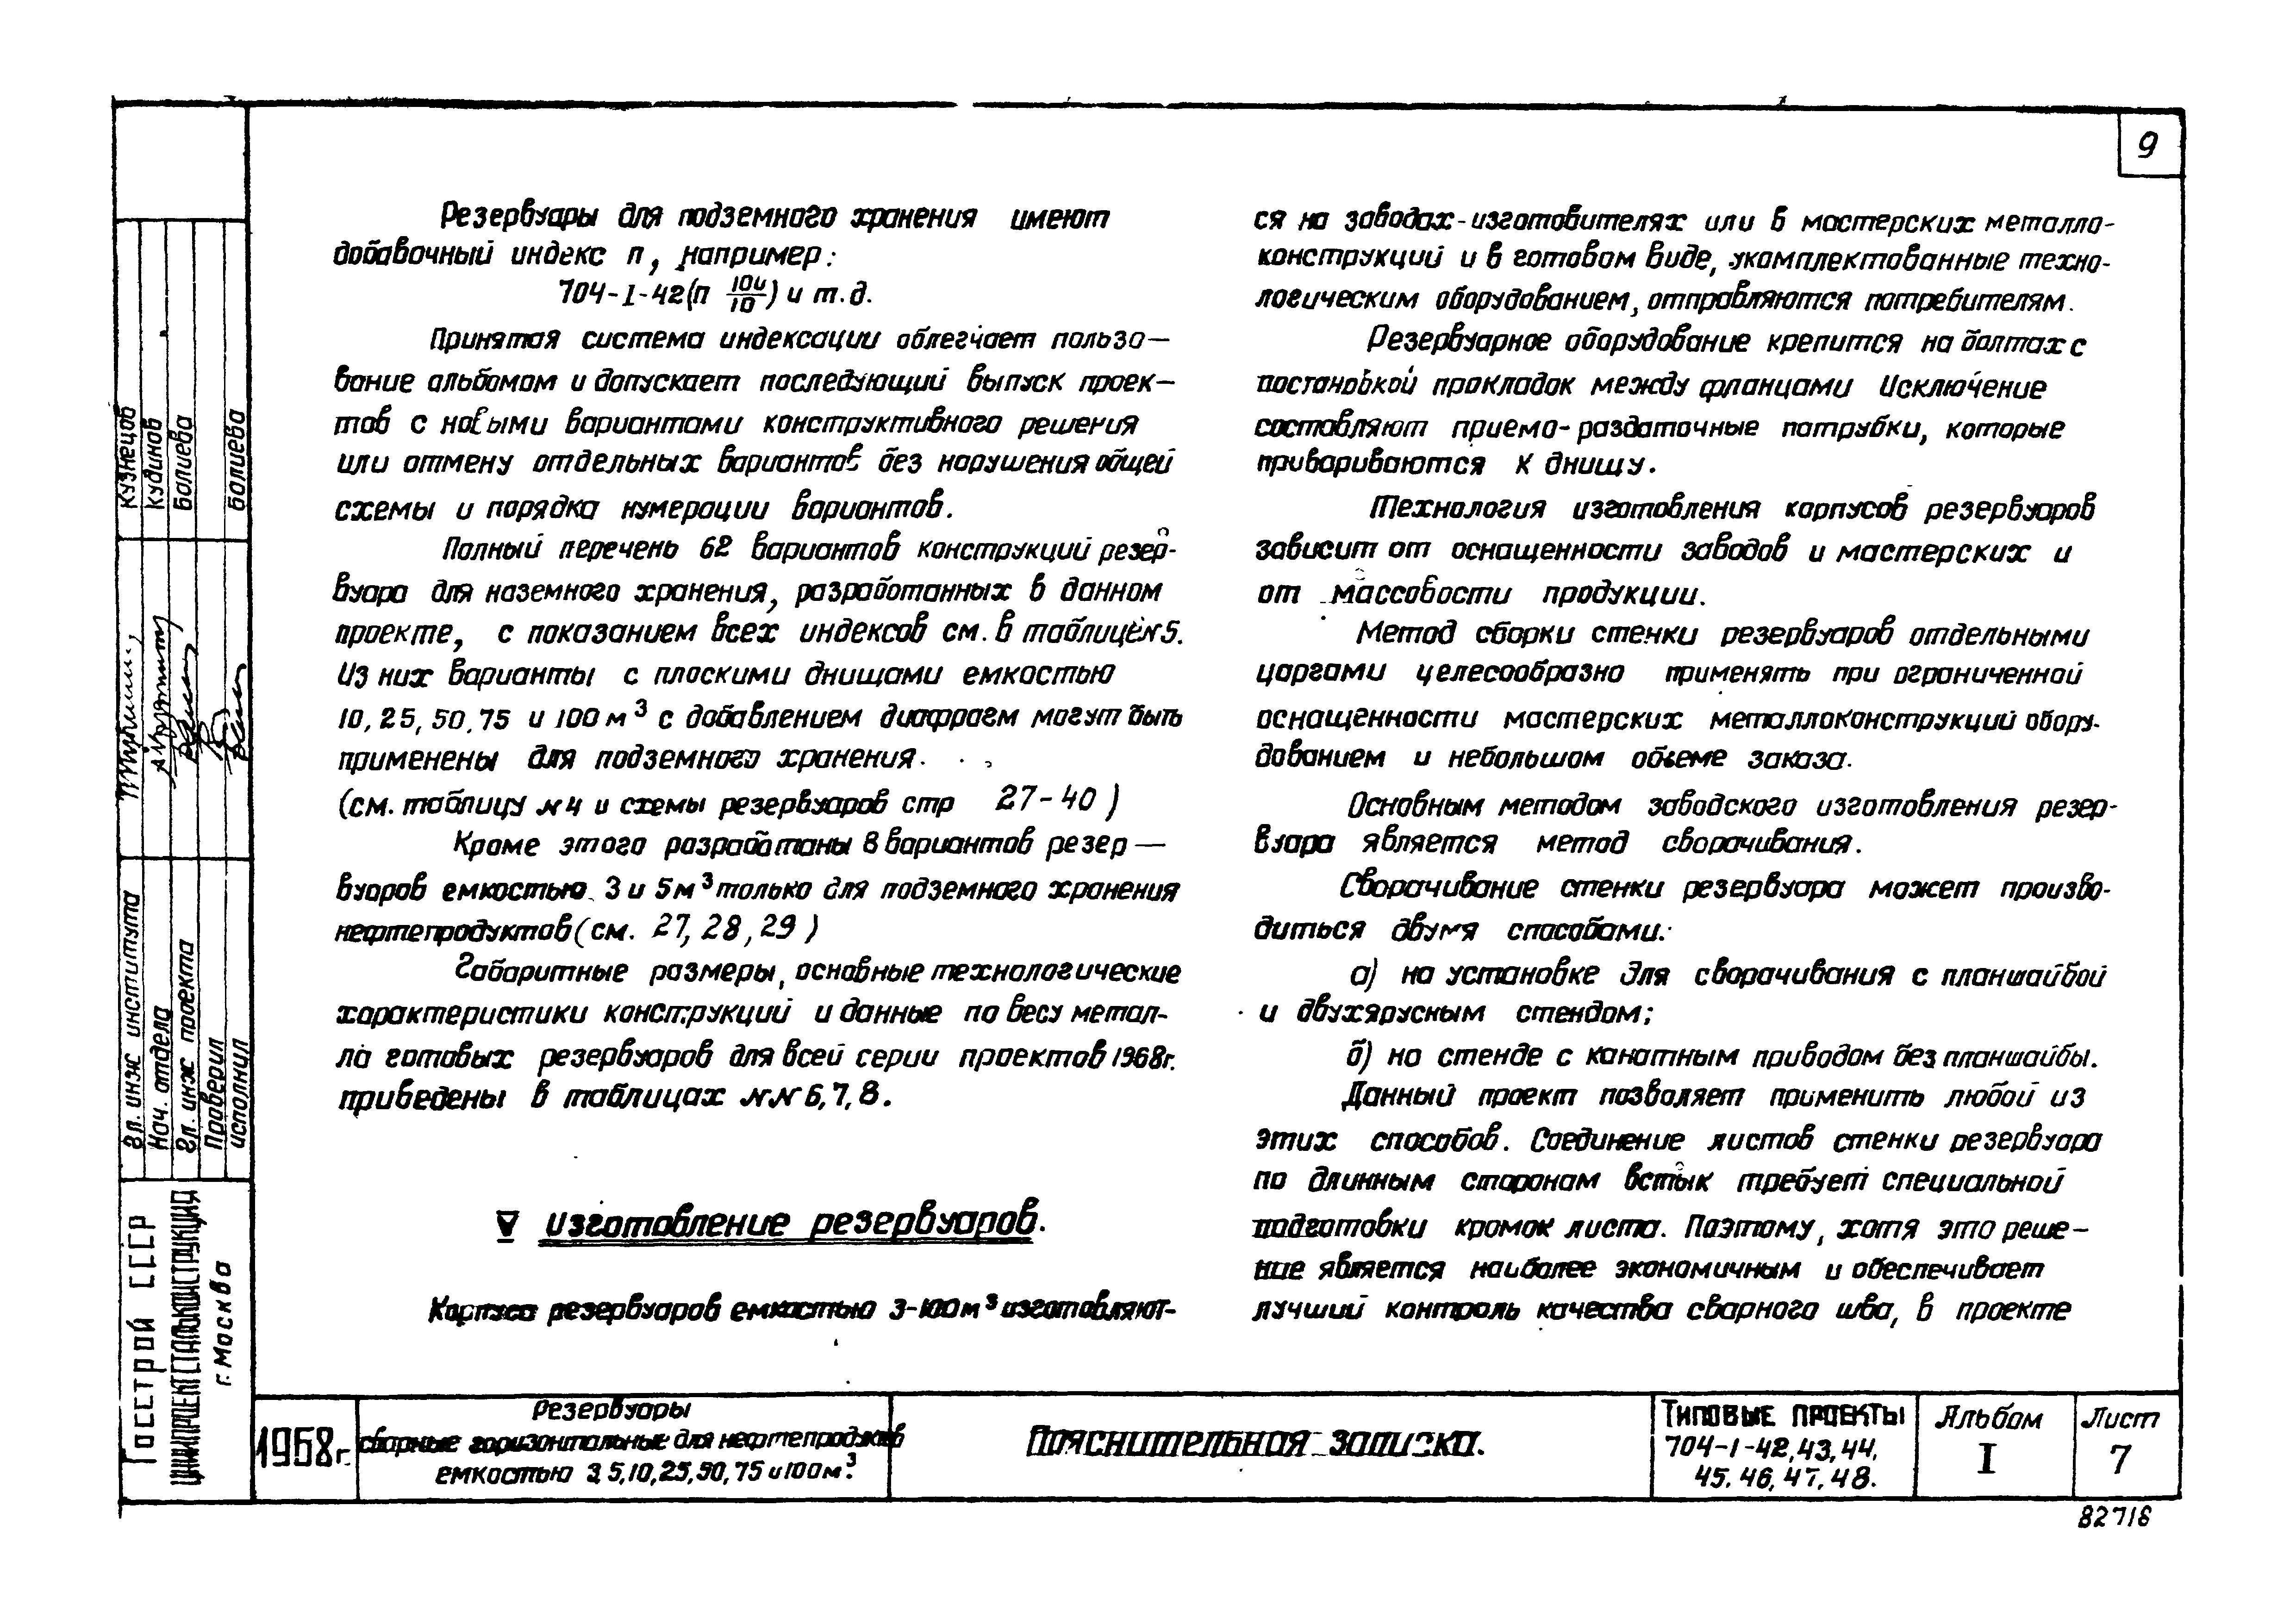 9
Резервуары для подземного хранения имеют
добавочный индекс п, например:
704-I-42(п 10и/10) и т.д.
Принятая система индексации облегчает пользо—
вание альбомом и допускает последующий выпуск проек—
тов с новыми вариантами конструктивного решения
или отмену отдельных вариантов без нарушения общей
схемы и порядка нумерации вариантов.
Полный перечень 62 вариантов конструкций резер-
вуара для наземного хранения, разработанных в данном
проекте, с показанием всех индексов см. в таблице №5.
Из них варианты с плоскими днищами емкостью
10, 25, 50, 75 и 100 м³ с добавлением диафрагм могут быть
применены для подземного хранения.
(см. таблицу №4 и схемы резервуаров стр 27-40)
Кроме этого разработаны 8 вариантов резер—
вуаров емкостью 3 и 5 м³ только для подземного хранения
нефтепродуктов (см. 27, 28, 29)
Габаритные размеры, основные технологические
характеристики конструкций и данные по весу метал-
ла готовых резервуаров для всей серии проектов 1968г.
приведены в таблицах №№ 6, 7, 8.
V изготовление резервуаров.
Корпуса резервуаров емкостью 3-100 м³ изготовляют-
ся на заводах-изготовителях или в мастерских металло-
конструкций и в готовом виде, укомплектованные техно-
логическим оборудованием, отправляются потребителям.
Резервуарное оборудование крепится на болтах с
постановкой прокладок между фланцами Исключение
составляют приемо-раздаточные патрубки, которые
привариваются к днищу.
Технология изготовления корпусов резервуаров
зависит от оснащенности заводов и мастерских и
от массовости продукции.
Метод сборки стенки резервуаров отдельными
царгами целесообразно применять при ограниченной
оснащенности мастерских металлоконструкций обору-
дованием и небольшом объеме заказа.
Основным методом заводского изготовления резер-
вуара является метод сворачивания.
Сворачивание стенки резервуара может произво-
диться двумя способами:
а) на установке для сворачивания с планшайбой
и двухярусным стендом;
б) на стенде с канатным приводом без планшайбы.
Данный проект позволяет применить любой из
этих способов. Соединение листов стенки резервуара
по длинным сторонам встык требует специальной
подготовки кромок листа. Поэтому, хотя это реше—
ние является наиболее экономичным и обеспечивает
лучший контроль качества сварного шва, в проекте
Кузнецов
Кудинов
Балиева
балиева
Гл. инж института
Нач. отдела
Гл. инж проекта
Проверил
исполнил
Госстрой СССР
ЦНИИПРОЕКТСТАЛЬКОНСТРУКЦИЯ
г. Москва
1968г.
Резервуары
сборные горизонтальные для нефтепродуктов
емкостью 3, 5, 10, 25, 50, 75 и 100 м³.
Пояснительная записка.
Типовые проекты
704-1-42, 43, 44,
45, 46, 47, 48.
Альбом
I
Лист
7
82718